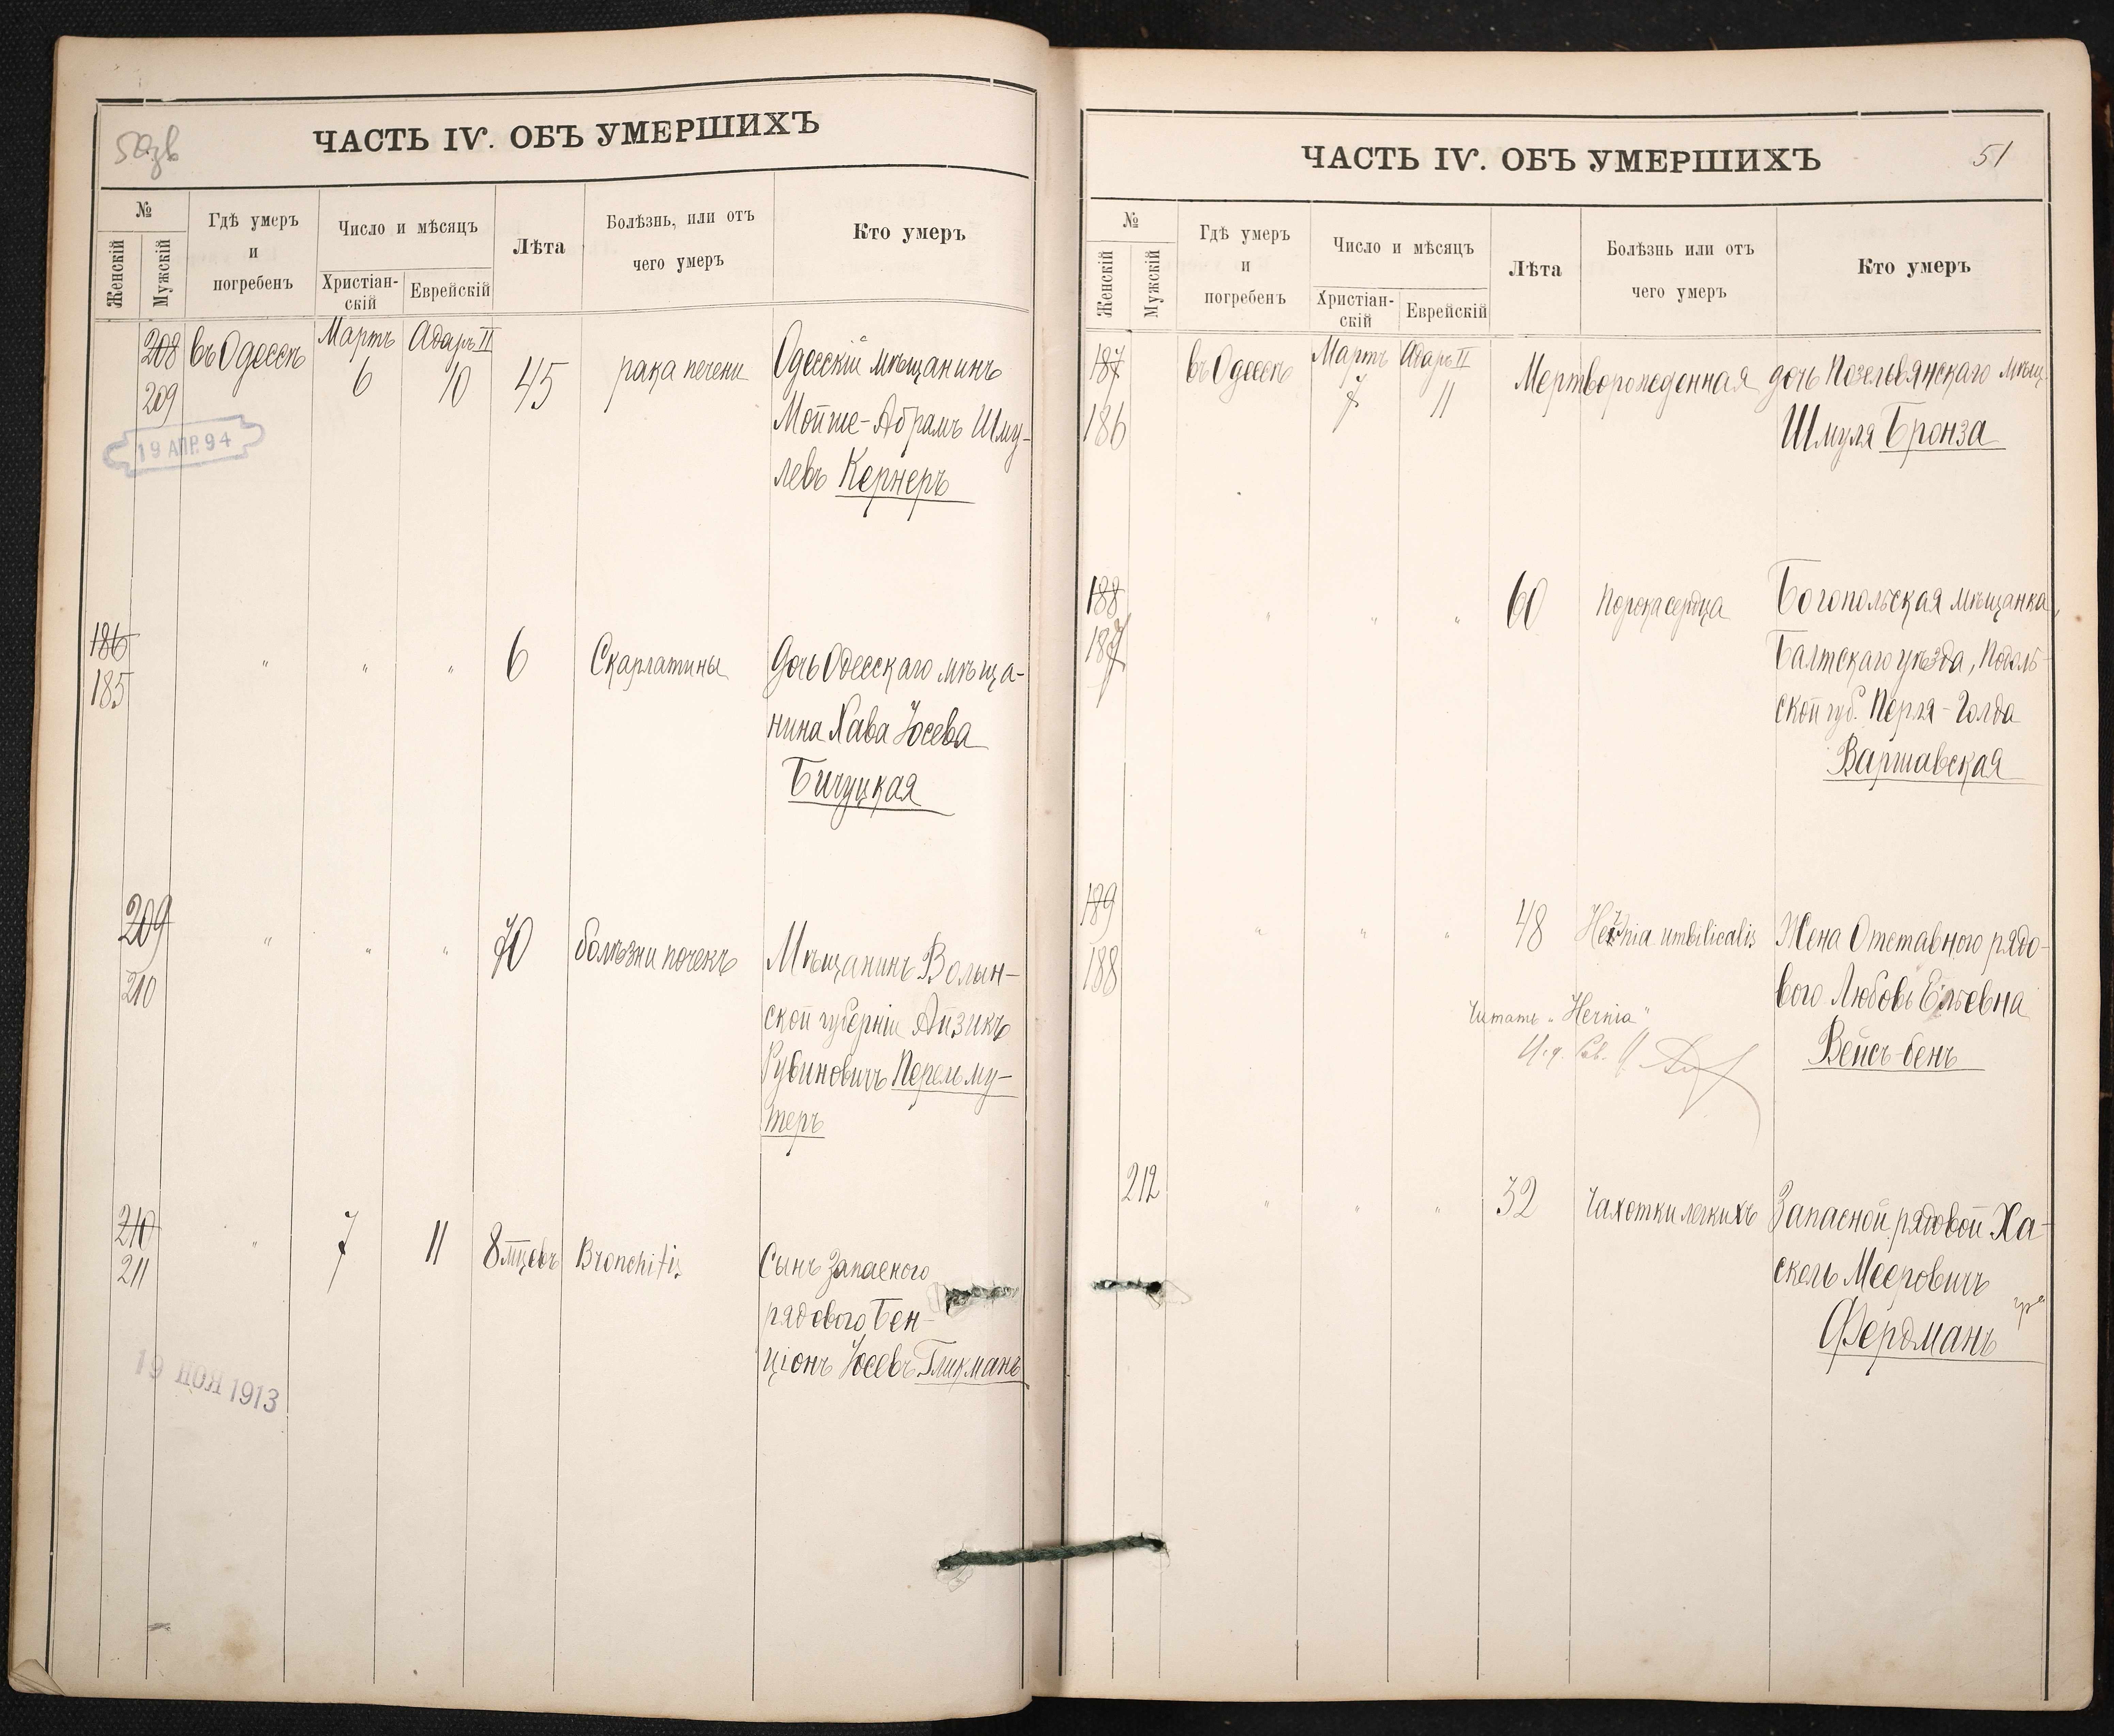 50зв
ЧАСТЬ IV. ОБЪ УМЕРШИХЪ
№
Женскій
Мужскій
Гдѣ умеръ
и
погребенъ
Число и мѣсяцъ
Христіан-
скій
Еврейскій
Лѣта
Болѣзнь, или отъ
чего умеръ
Кто умеръ
208
209
въ Одессѣ
Мартъ
6
Адаръ II
10
45
рака печени
Одесскій мѣщанинъ
Мойше-Абрамъ Шму-
левъ Кернеръ
19 АПР. 94
186
185
" " "
6
Скарлатины
Дочь Одесскаго мѣща-
нина Хава Іосева
Бичуцкая
209
210
" " "
70
болѣзни почекъ
Мѣщанинъ Волын-
ской губерніи Айзикъ
Рубиновичъ Перельму-
теръ
210
211
"
7
11
8 мцевъ
Bronchitis
Сынъ Запаснаго
рядового Бен-
ціонъ Іосевъ Гликманъ
19 НОЯ 1913
ЧАСТЬ IV. ОБЪ УМЕРШИХЪ
51
№
Женскій
Мужскій
Гдѣ умеръ
и
погребенъ
Число и мѣсяцъ
Христіан-
скій
Еврейскій
Лѣта
Болѣзнь или отъ
чего умеръ
Кто умеръ
187
186
въ Одессѣ
Мартъ
7
Адаръ II
11
Мертворожденная
дочь Позельвянскаго Мѣщ.
Шмуля Бронза
188
187
" " "
60
Порока сердца
Богопольская мѣщанка,
Балтскаго уѣзда, Подоль-
ской губ. Перля-Голда
Варшавская
189
188
" " "
48
Hernia umbilicalis
Жена Отставного рядо-
вого Любовь Ельевна
Вейсъ-бенъ
Читать „Hernia"
212
" " "
32
Чахотки легкихъ
Запасной рядовой Ха-
скель Мееровичъ
Фердманъ